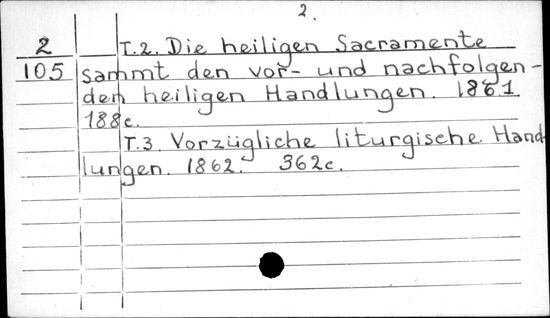 2.
2 T.2. Die heiligen Sacramente
105 sammt den vor- und nachfolgen-
den heiligen Handlungen. 1861
188c.
T.3. Vorzügliche liturgische Hand-
lungen. 1862. 362c.